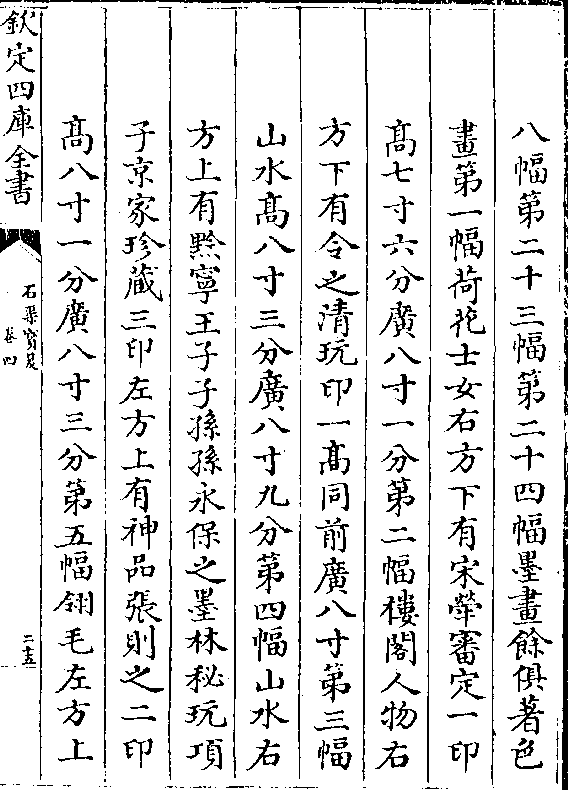 八幅第二十三幅第二十四幅墨畫餘俱著色
畫第一幅荷花士女右方下有宋犖審定一印
髙七寸六分廣八寸一分第二幅樓閣人物右
方下有令之清玩印一髙同前廣八寸第三幅
山水髙八寸三分廣八寸九分第四幅山水右
方上有黔寧王子子孫孫永保之墨林秘玩項
子京家珍藏三印左方上有神品張則之二印
髙八寸一分廣八寸三分第五幅翎毛左方上
欽定四庫全書
石渠寳笈
卷四
二十五